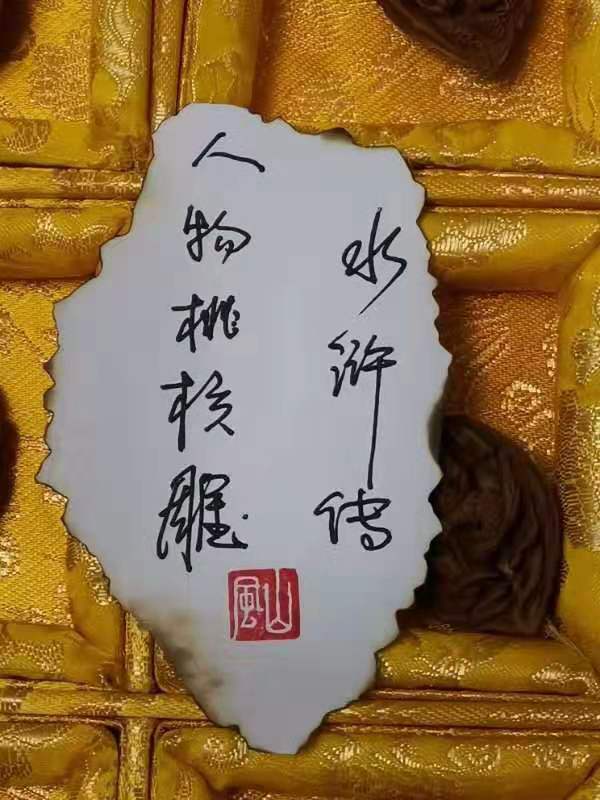 水浒传
人物桃核雕
山風